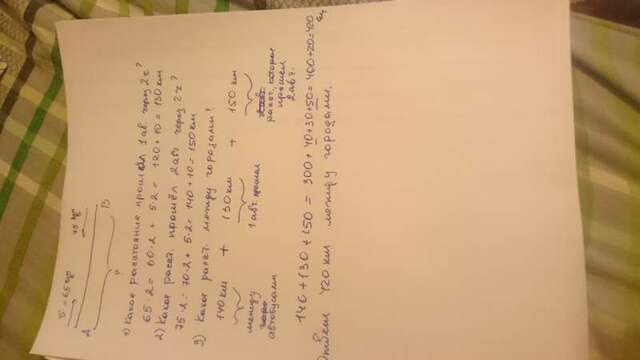 V = 65 км/ч
75 км/ч
A
B
?
1) Какое расстояние прошёл 1 авт. через 2 ч?
65·2 = 60·2 + 5·2 = 120 + 10 = 130 км
2) Какое расст. прошёл 2 авт через 2 ч?
75·2 = 70·2 + 5·2 = 140 + 10 = 150 км
3) Какое расст. между городами?
140 км + 130 км + 150 км
между
автобусами
1 авт. прошел
расст. которое
прошел
2 авт.
140 + 130 + 150 = 300 + 40 + 30 + 50 = 400 + 20 = 420
км
Ответ 420 км между городами.